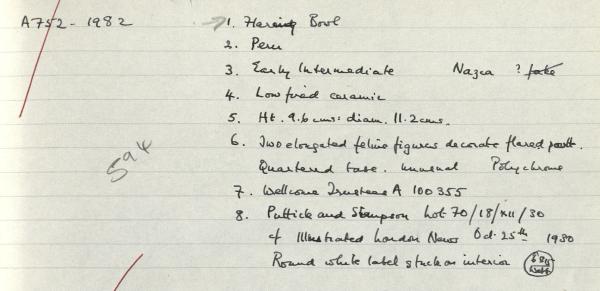 A752 - 1982
1. Flaring Bowl
2. Peru
3. Early Intermediate Nazca ? fake
4. Low fired ceramic
5. Ht. 9.6 cms: diam. 11.2 cms.
6. Two elongated feline figures decorate flared
Quartered base. unusual Polychrome
7. Wellcome Trustees A 100355
8. Puttick and Simpson Lot 70/18/XII/30
cf Illustrated London News Oct. 25th 1930
Round white label stuck on interior